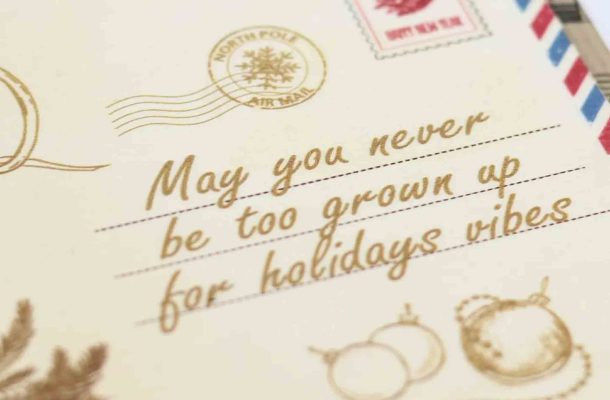 HAPPY NEW YEAR
NORTH POLE
AIR MAIL
May you never
be too grown up
for holidays vibes